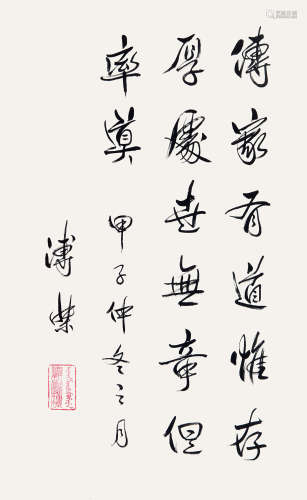 傳家有道惟存
厚處世無奇但
率真 甲子仲冬之月
溥杰